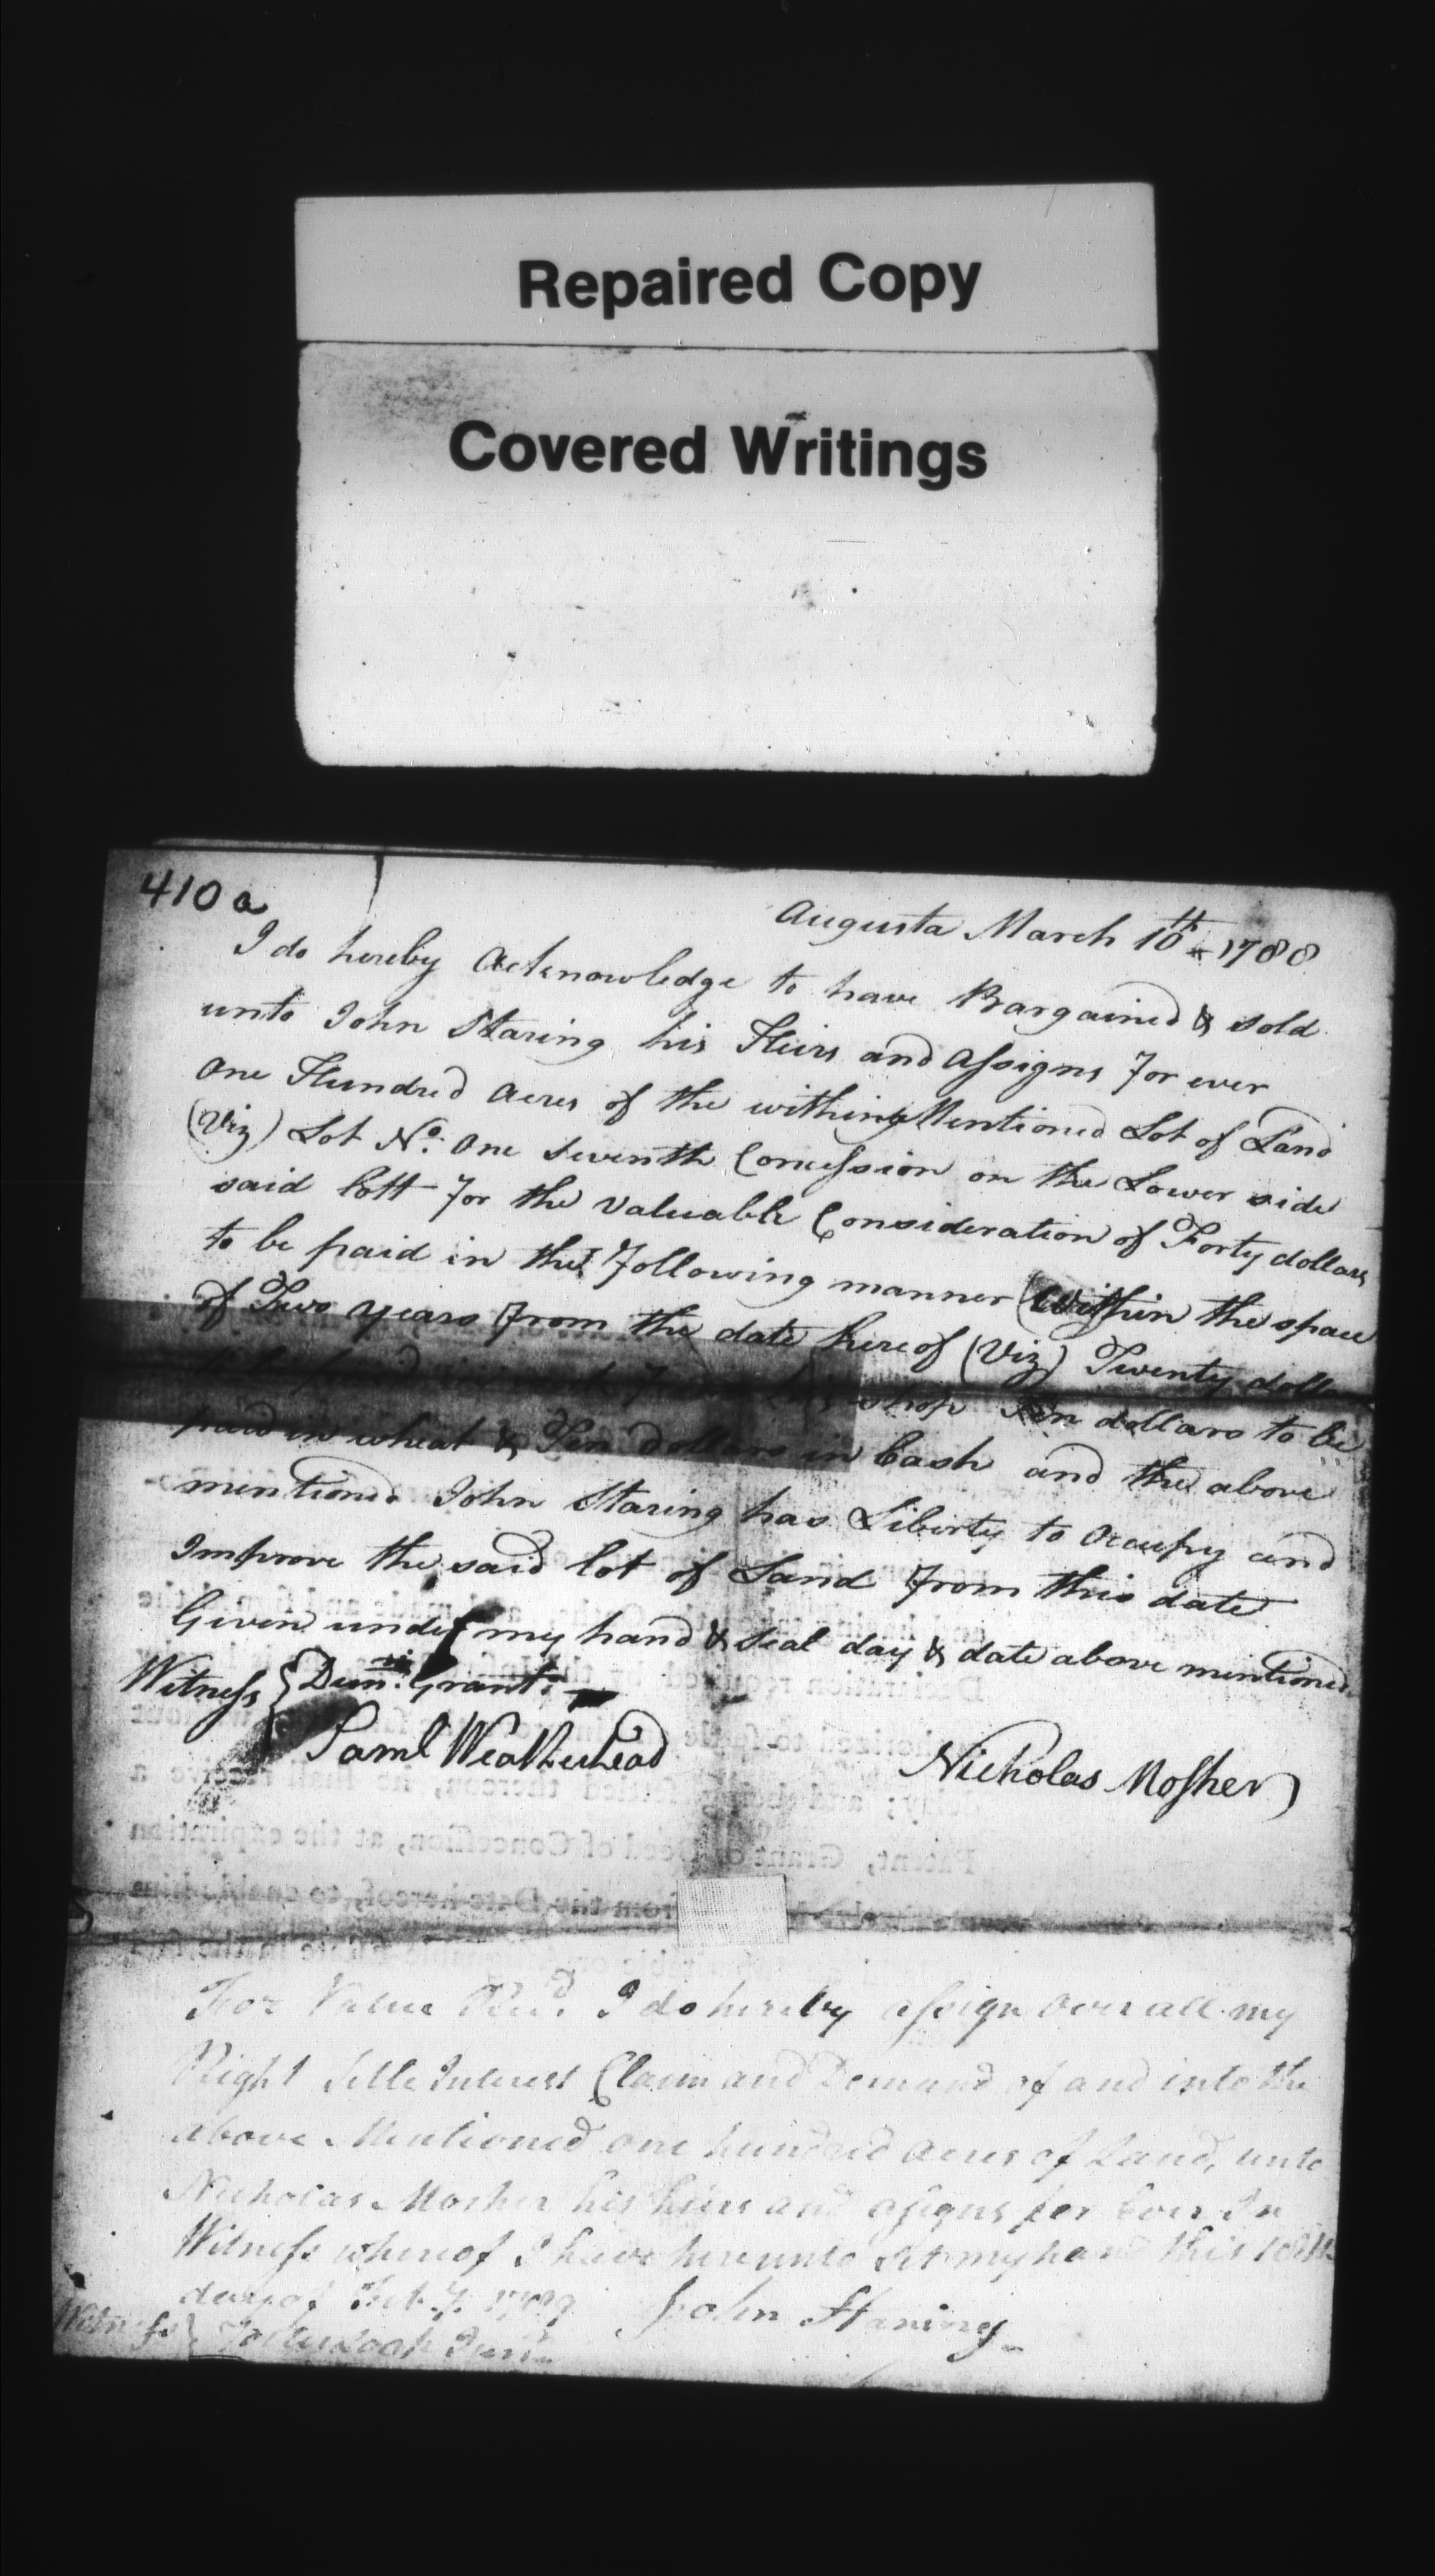 Repaired Copy
Covered Writings
410 a
Augusta March 10th 1788
I do hereby Acknowledge to have Bargained & sold
unto John Staring his Heirs and Assigns For ever
One Hundred Acres of the within Mentioned Lot of Land
(Viz) Lot No. One Seventh Concession on the Lower side
said lott For the Valuable Consideration of Forty dollars
to be paid in the Following manner (Within the space
of Two years From the date hereof (Viz) Twenty
shop Ten dollars to be
paid in wheat & Ten Dollars in Cash and the above
mentioned John Staring has Liberty to Occupy and
Improve the said lot of Land From this date
Given under my hand & seal day & date above mentioned
Witness Dunn. Grant
Saml Weatherhead
Nicholas Mosher
For Value Recd. I do hereby assign over all my
Right Title Interest Claim and Demand of and into the
above Mentioned one hundred Acres of Land, unto
Nicholas Mosher his heirs and assigns for Ever In
Witness whereof I have hereunto set my hand this
day of Feby. 1789 John Staring
Witness